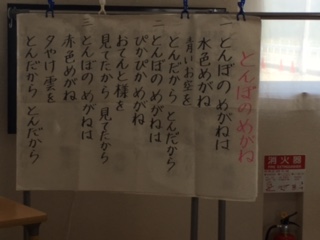 とんぼのめがね
一 とんぼの めがねは
水色めがね
青いお空を
とんだから とんだから
二 とんぼの めがねは
ぴかぴか めがね
おてんと様を
見てたから 見てたから
三 とんぼの めがねは
赤色めがね
夕やけ雲を
とんだから とんだから
消火器